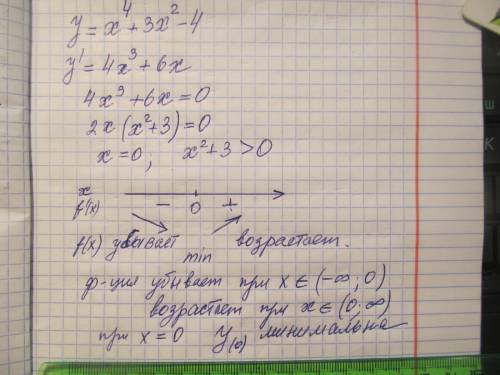 y = x⁴ + 3x² - 4
y' = 4x³ + 6x
4x³ + 6x = 0
2x(x² + 3) = 0
x = 0; x² + 3 > 0
x
f'(x) - 0 +
f(x) убывает min возрастает.
ф-ция убывает при x ∈ (-∞; 0)
возрастает при x ∈ (0; ∞)
при x = 0 y(0) минимальна